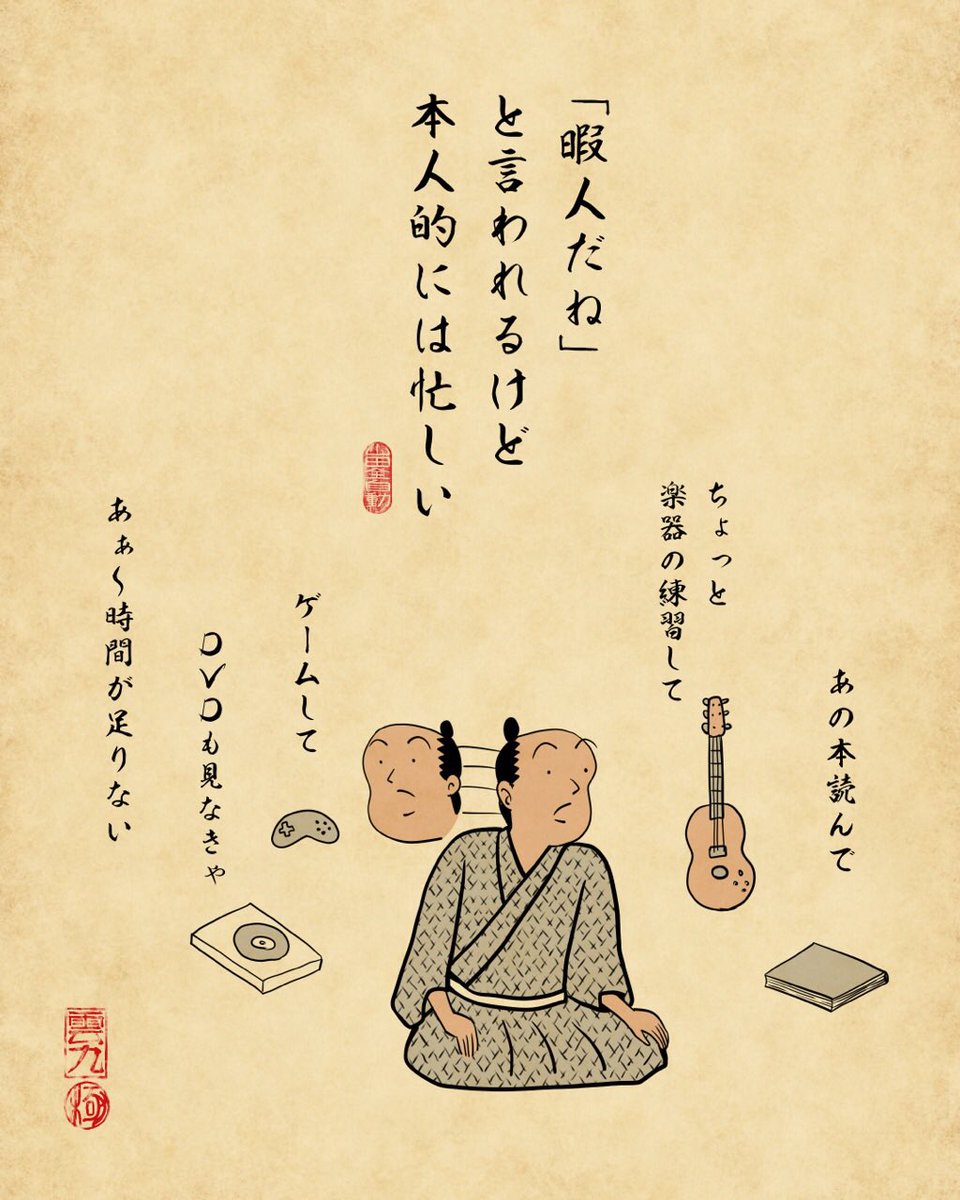 「暇人だね」
と言われるけど
本人的には忙しい
あの本読んで
ちょっと
楽器の練習して
ゲームして
DVDも見なきゃ
あぁ〜時間が足りない